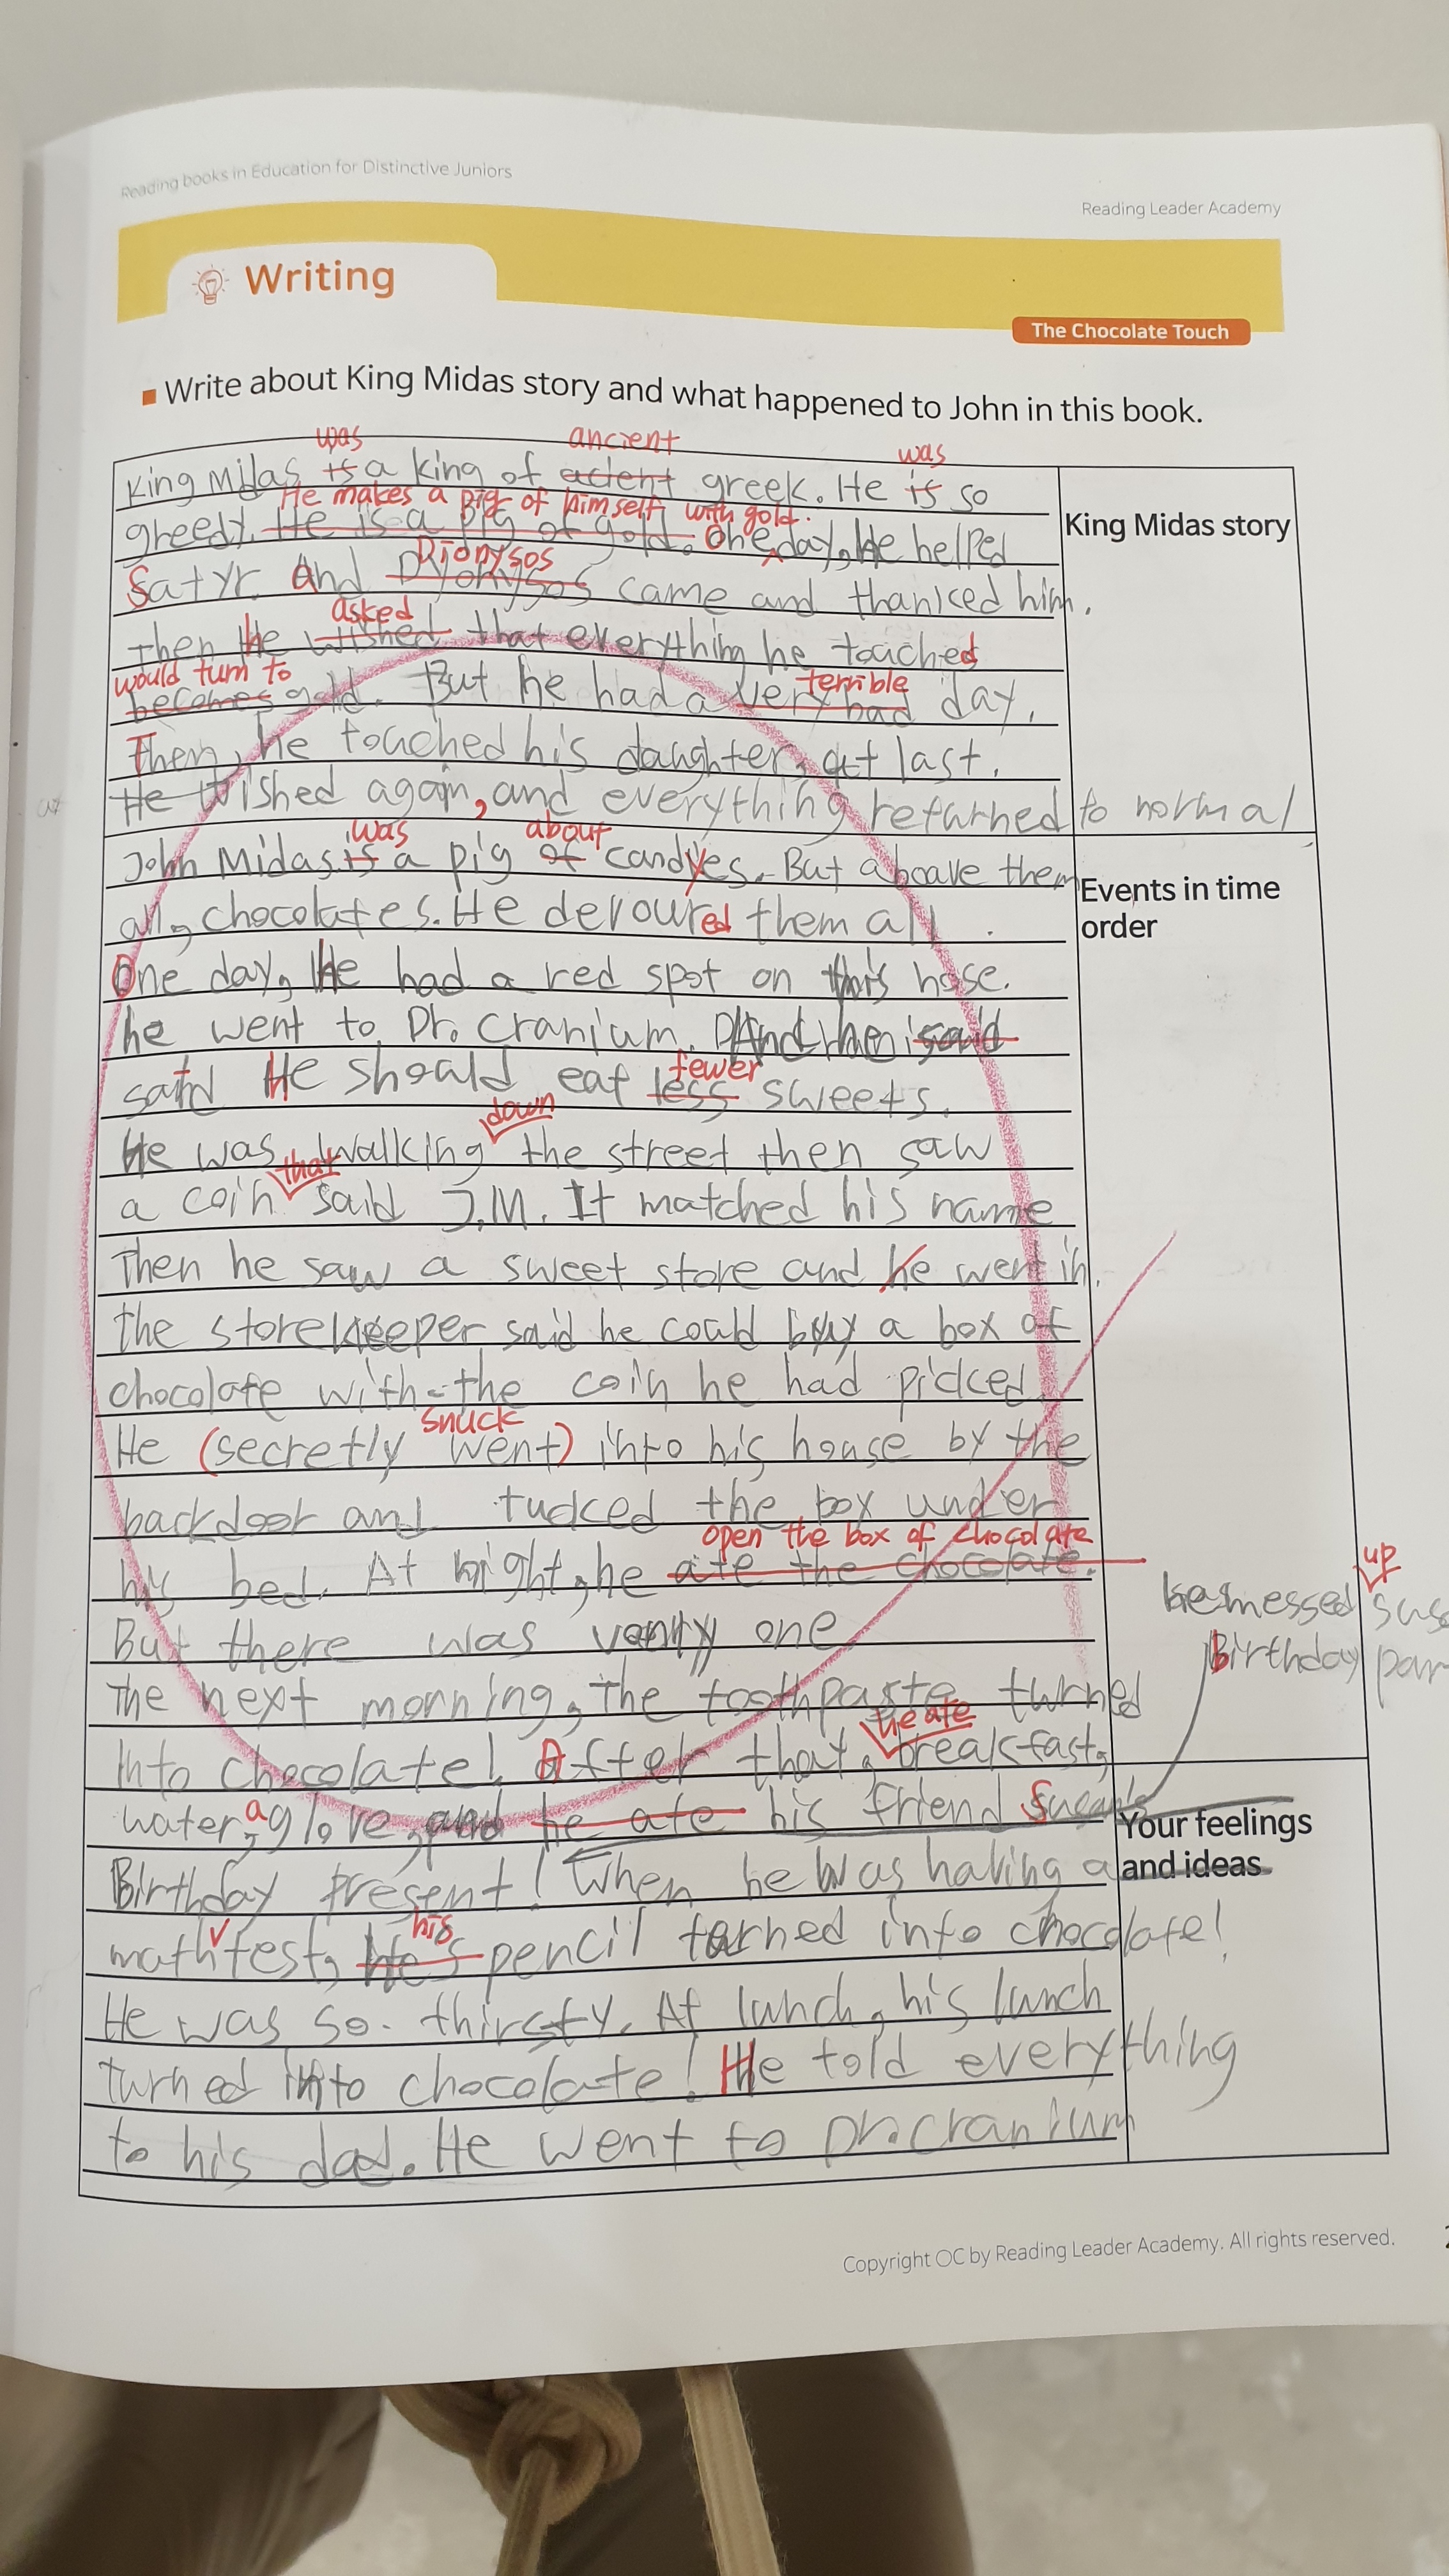 Reading books in Education for Distinctive Juniors
Reading Leader Academy
Writing
The Chocolate Touch
Write about King Midas story and what happened to John in this book.
was ancient was
King Midas is a king of acient greek. He is so
He makes a pig of himself with gold.
greedy. He is a pig of gold. One day, He helped
King Midas story
Dionysos
Satyr. And Dyonysos came and thanked him.
asked
Then he wished that everything he touched
would turn to terrible
becomes gold. But he had a very bad day.
Then, he touched his daughter, at last.
He wished again, and everything returned to normal
was about
John Midas is a pig of candyes. But aboave them
Events in time order
all, chocolates. He devoured them all.
One day, He had a red spot on his nose.
he went to Dr. Cranium. And he said
fewer
said He should eat less sweets.
down
He was walking the street then saw
that
a coin said J.M. It matched his name
Then he saw a sweet store and he went in.
the storekeeper said he could buy a box of
chocolate with the coin he had picked
snuck
He (secretly went) into his house by the
backdoor and tucked the box under
open the box of chocolate
his bed. At night, he ate the chocolate.
But there was only one
up
he messed
Birthday
The next morning, The toothpaste turned
he ate
Into chocolate! After that, breakfast,
water, a glove, and he ate his friend
Birthday present! When he was having a
Your feelings and ideas
his
math test, He's pencil turned into chocolate!
He was so thirsty. At lunch, his lunch
turned into chocolate! He told everything
to his dad. He went to Dr. Cranium
Copyright OC by Reading Leader Academy. All rights reserved.